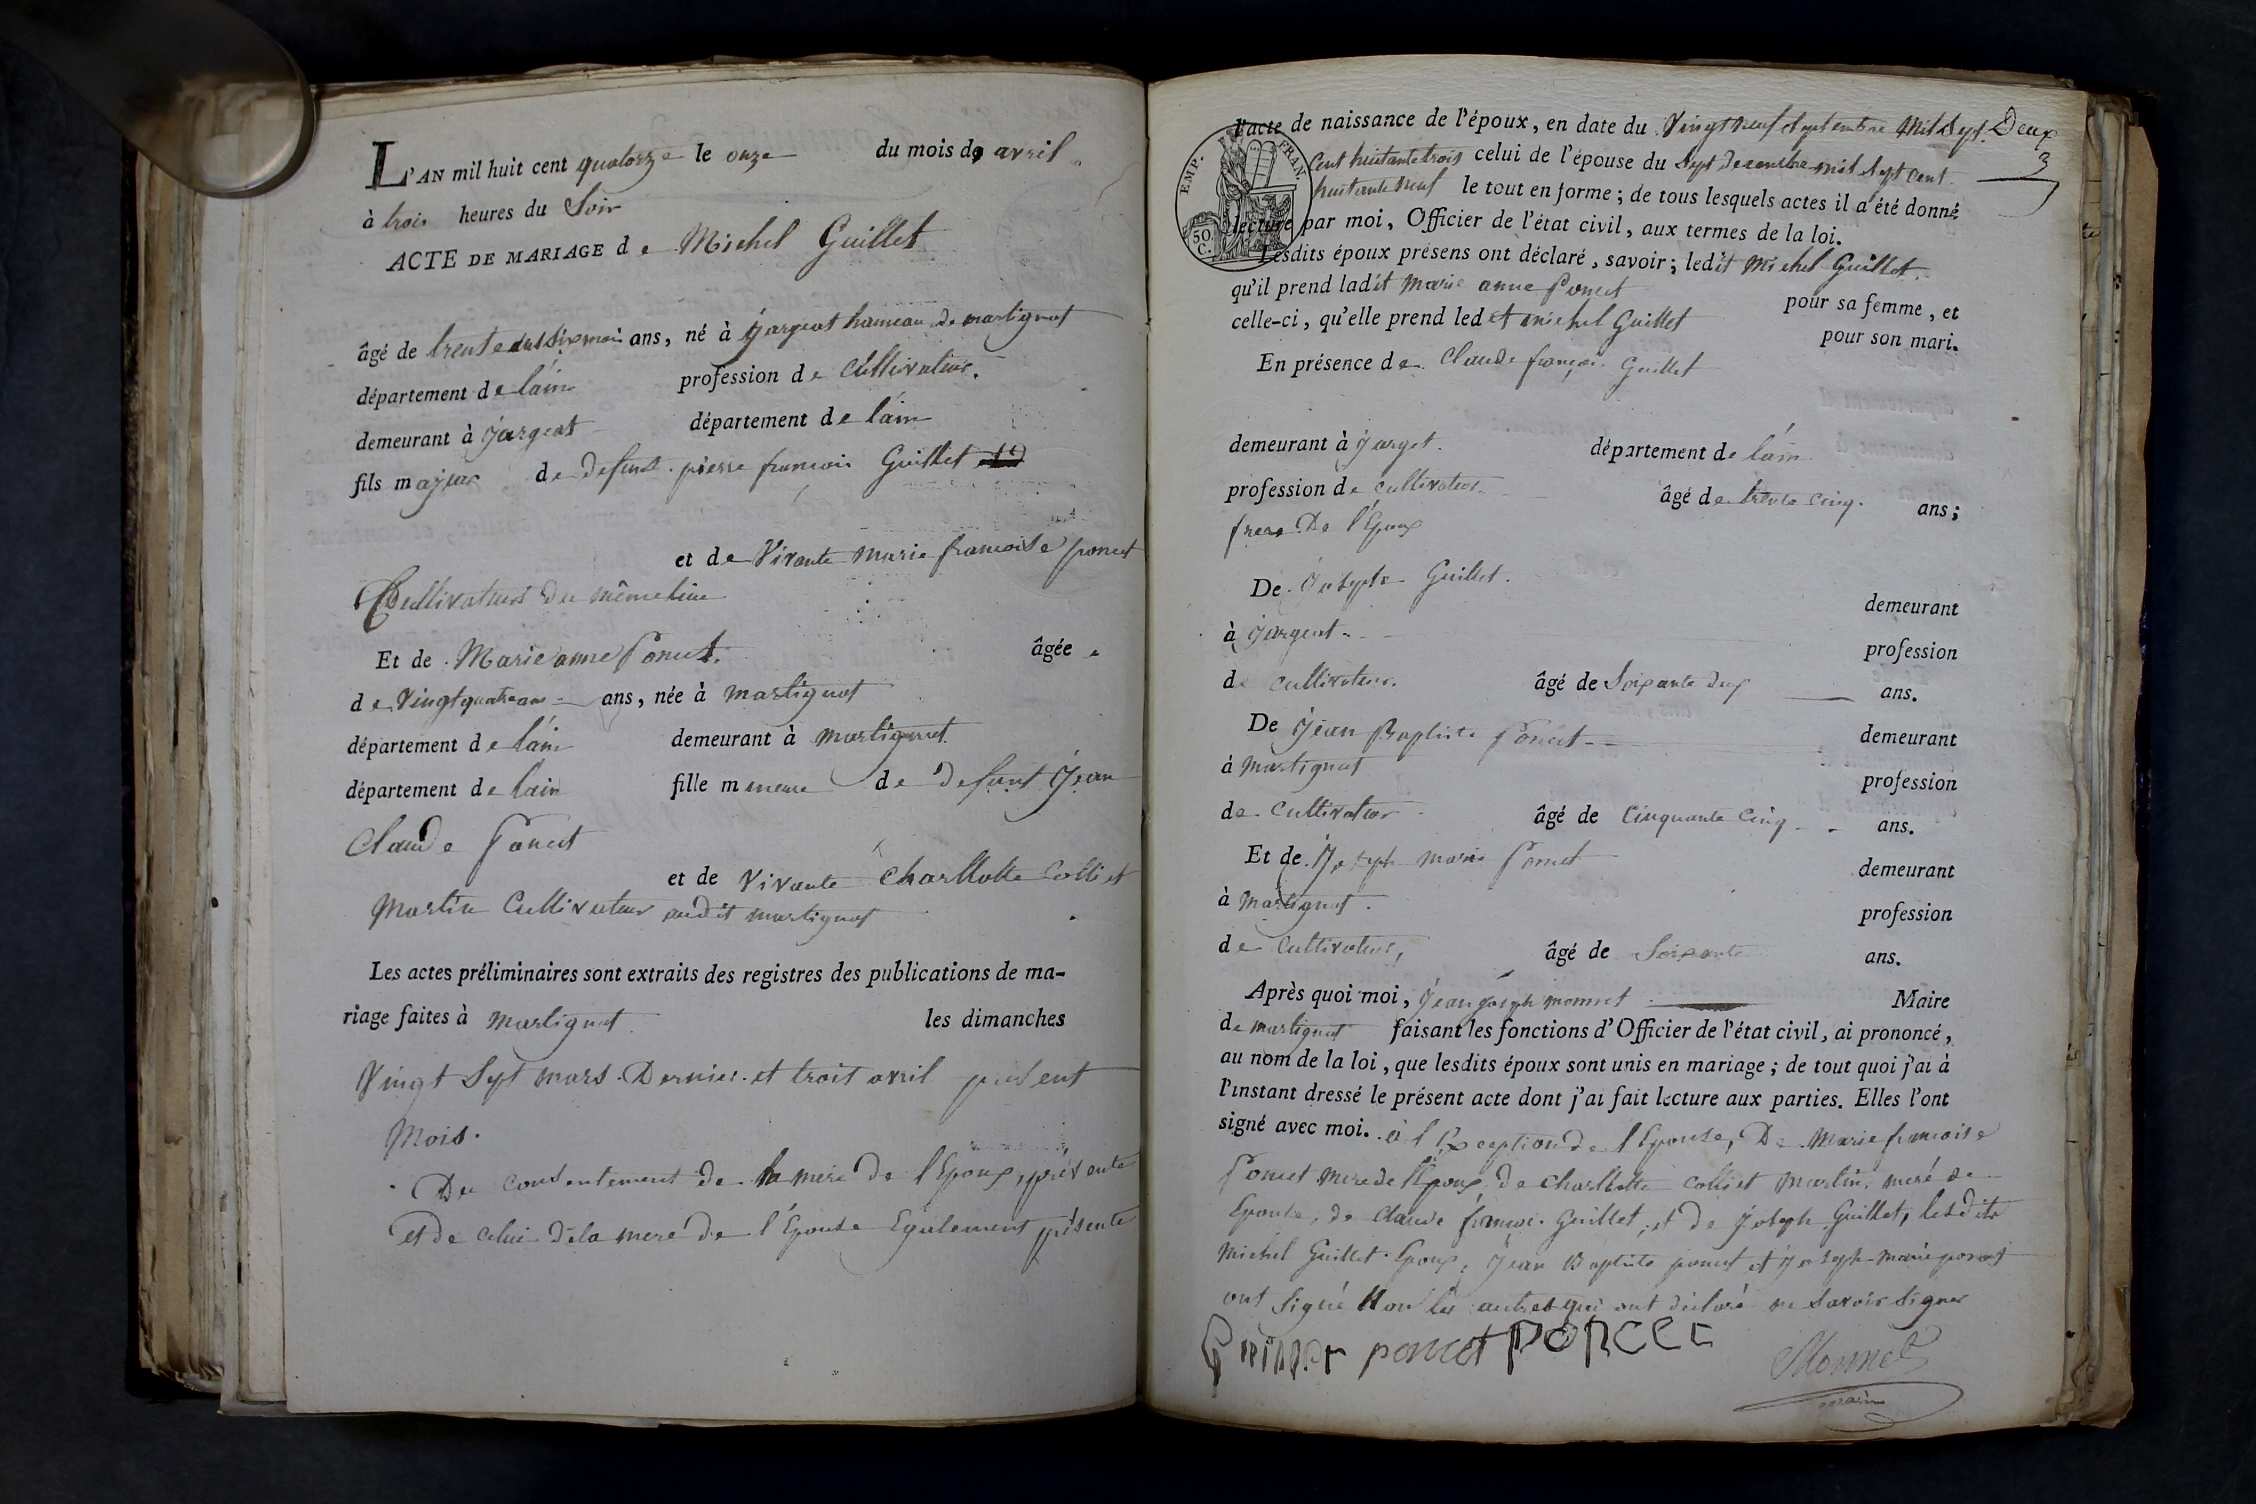 L'AN mil huit cent quatorze le onze du mois de avril
à trois heures du Soir
ACTE DE MARIAGE de Michel Guillet
âgé de trente ans, né à Jargeat hameau de martignat
département de l'ain profession de Cultivateur.
demeurant à Jargeat département de l'ain
fils majeur de defunt pierre francois Guillet
et de Vivante marie francoise poncet
Cultivateurs du même lieu
Et de Marie anne Poncet. âgée
de Vingtquatre ans ans, née à martignat
département de l'ain demeurant à martignat
département de l'ain fille mineure de Defunt Jean
Claude Poncet
et de Vivante Charllotte Colliet
Martin Cultivateur audit martignat
Les actes préliminaires sont extraits des registres des publications de ma-
riage faites à martignat les dimanches
Vingt Sept mars Dernier et trois avril présent
Mois.
Du consentement de la mere de l'Epoux, présente
et de celui de la mere de l'Epouse Egalement présente
Deux
3
EMP. FRAN.
50 C.
l'acte de naissance de l'époux, en date du Vingt neuf Septembre Mil Sept
Cent huitante trois celui de l'épouse du Sept Decembre mil Sept Cent
huitante neuf le tout en forme; de tous lesquels actes il a été donné
lecture par moi, Officier de l'état civil, aux termes de la loi.
Lesdits époux présens ont déclaré, savoir; ledit Michel Guillet
qu'il prend ladit Marie anne Poncet pour sa femme, et
celle-ci, qu'elle prend ledit michel Guillet pour son mari.
En présence de Claude françois Guillet
demeurant à Jarget département de l'ain
profession de cultivateur âgé de trente cinq ans;
frere De l'Epoux
De Joseph Guillet demeurant
à Jargeat profession
de cultivateur. âgé de Soixante ans.
De Jean Baptiste Poncet demeurant
à Martignat profession
de cultivateur âgé de Cinquante Cinq ans.
Et de Joseph marie Poncet demeurant
à Martignat profession
de Cultivateur, âgé de Soixante ans.
Après quoi moi, Jean Joseph monnet Maire
de martignat faisant les fonctions d'Officier de l'état civil, ai prononcé,
au nom de la loi, que lesdits époux sont unis en mariage; de tout quoi j'ai à
l'instant dressé le présent acte dont j'ai fait lecture aux parties. Elles l'ont
signé avec moi. à l'Exception de l'Epouse, De Marie francoise
Poncet mere de l'Epoux de Charllotte Colliet Martin, mere de
Epouse, de Claude françois Guillet, et de Joseph Guillet, lesdits
Michel Guillet Epoux, Jean Baptiste poncet et Joseph marie poncet
ont Signé Non les autres qui ont déclaré ne Savoir Signer
Guillet poncet PONCET
Monnet
maire